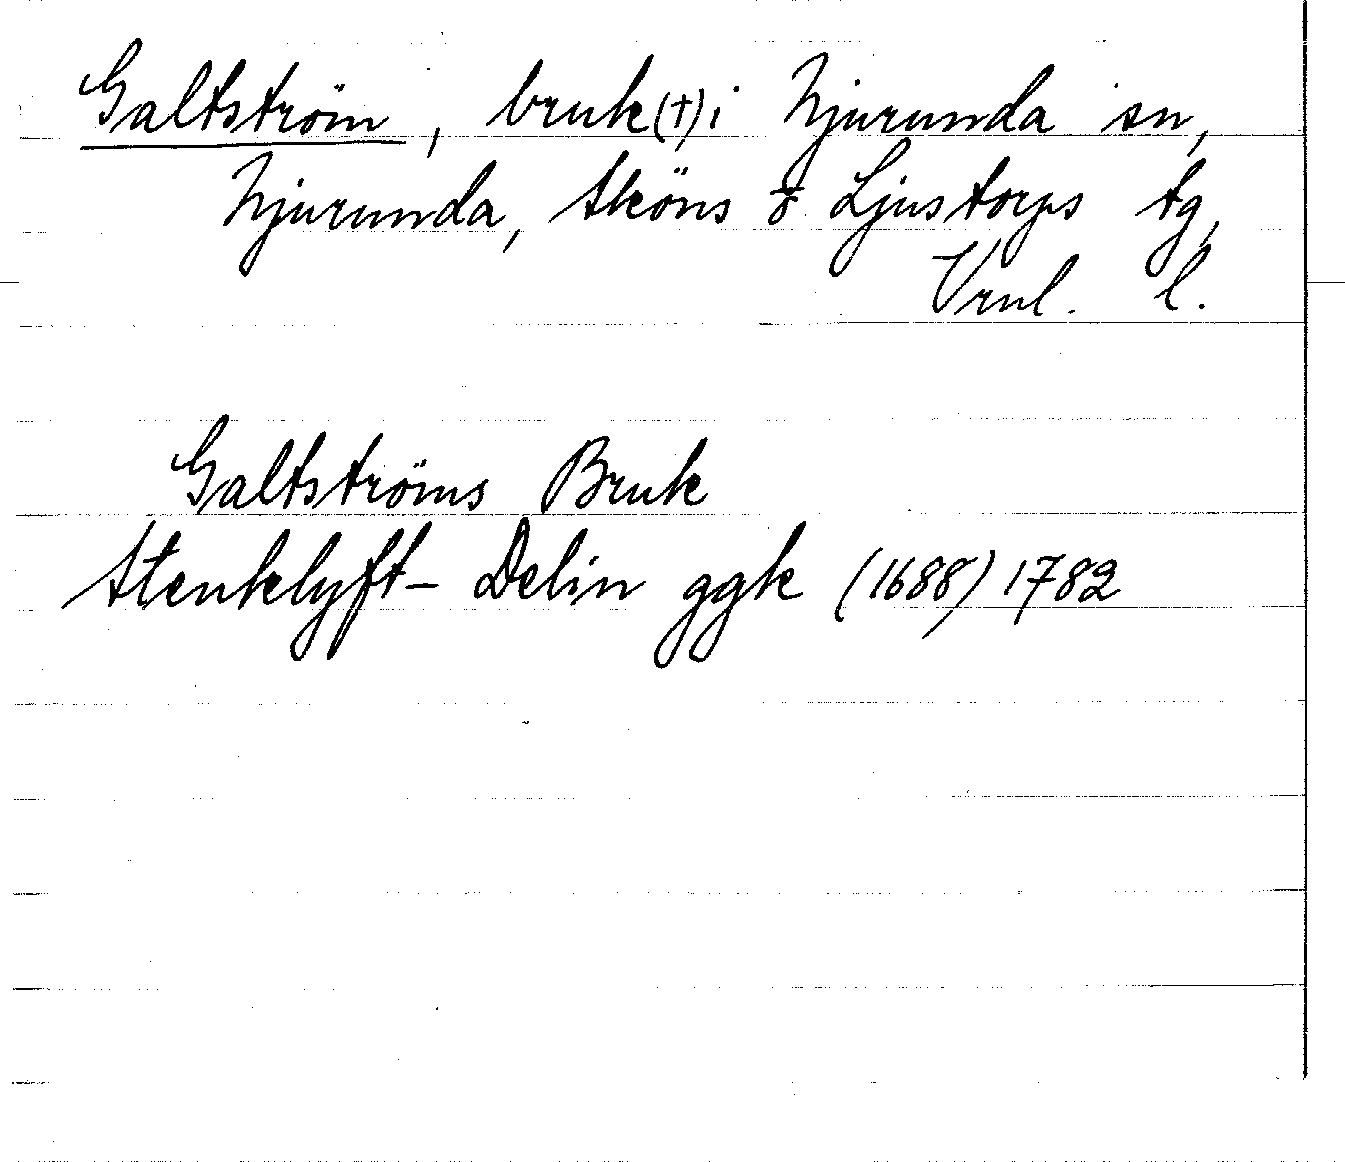 Galtström, bruk(†) i Njurunda sn,
Njurunda, Sköns & Ljustorps tg,
Vrnl. l.
Galtströms Bruk
Stenklyft-Delin ggk (1688) 1782